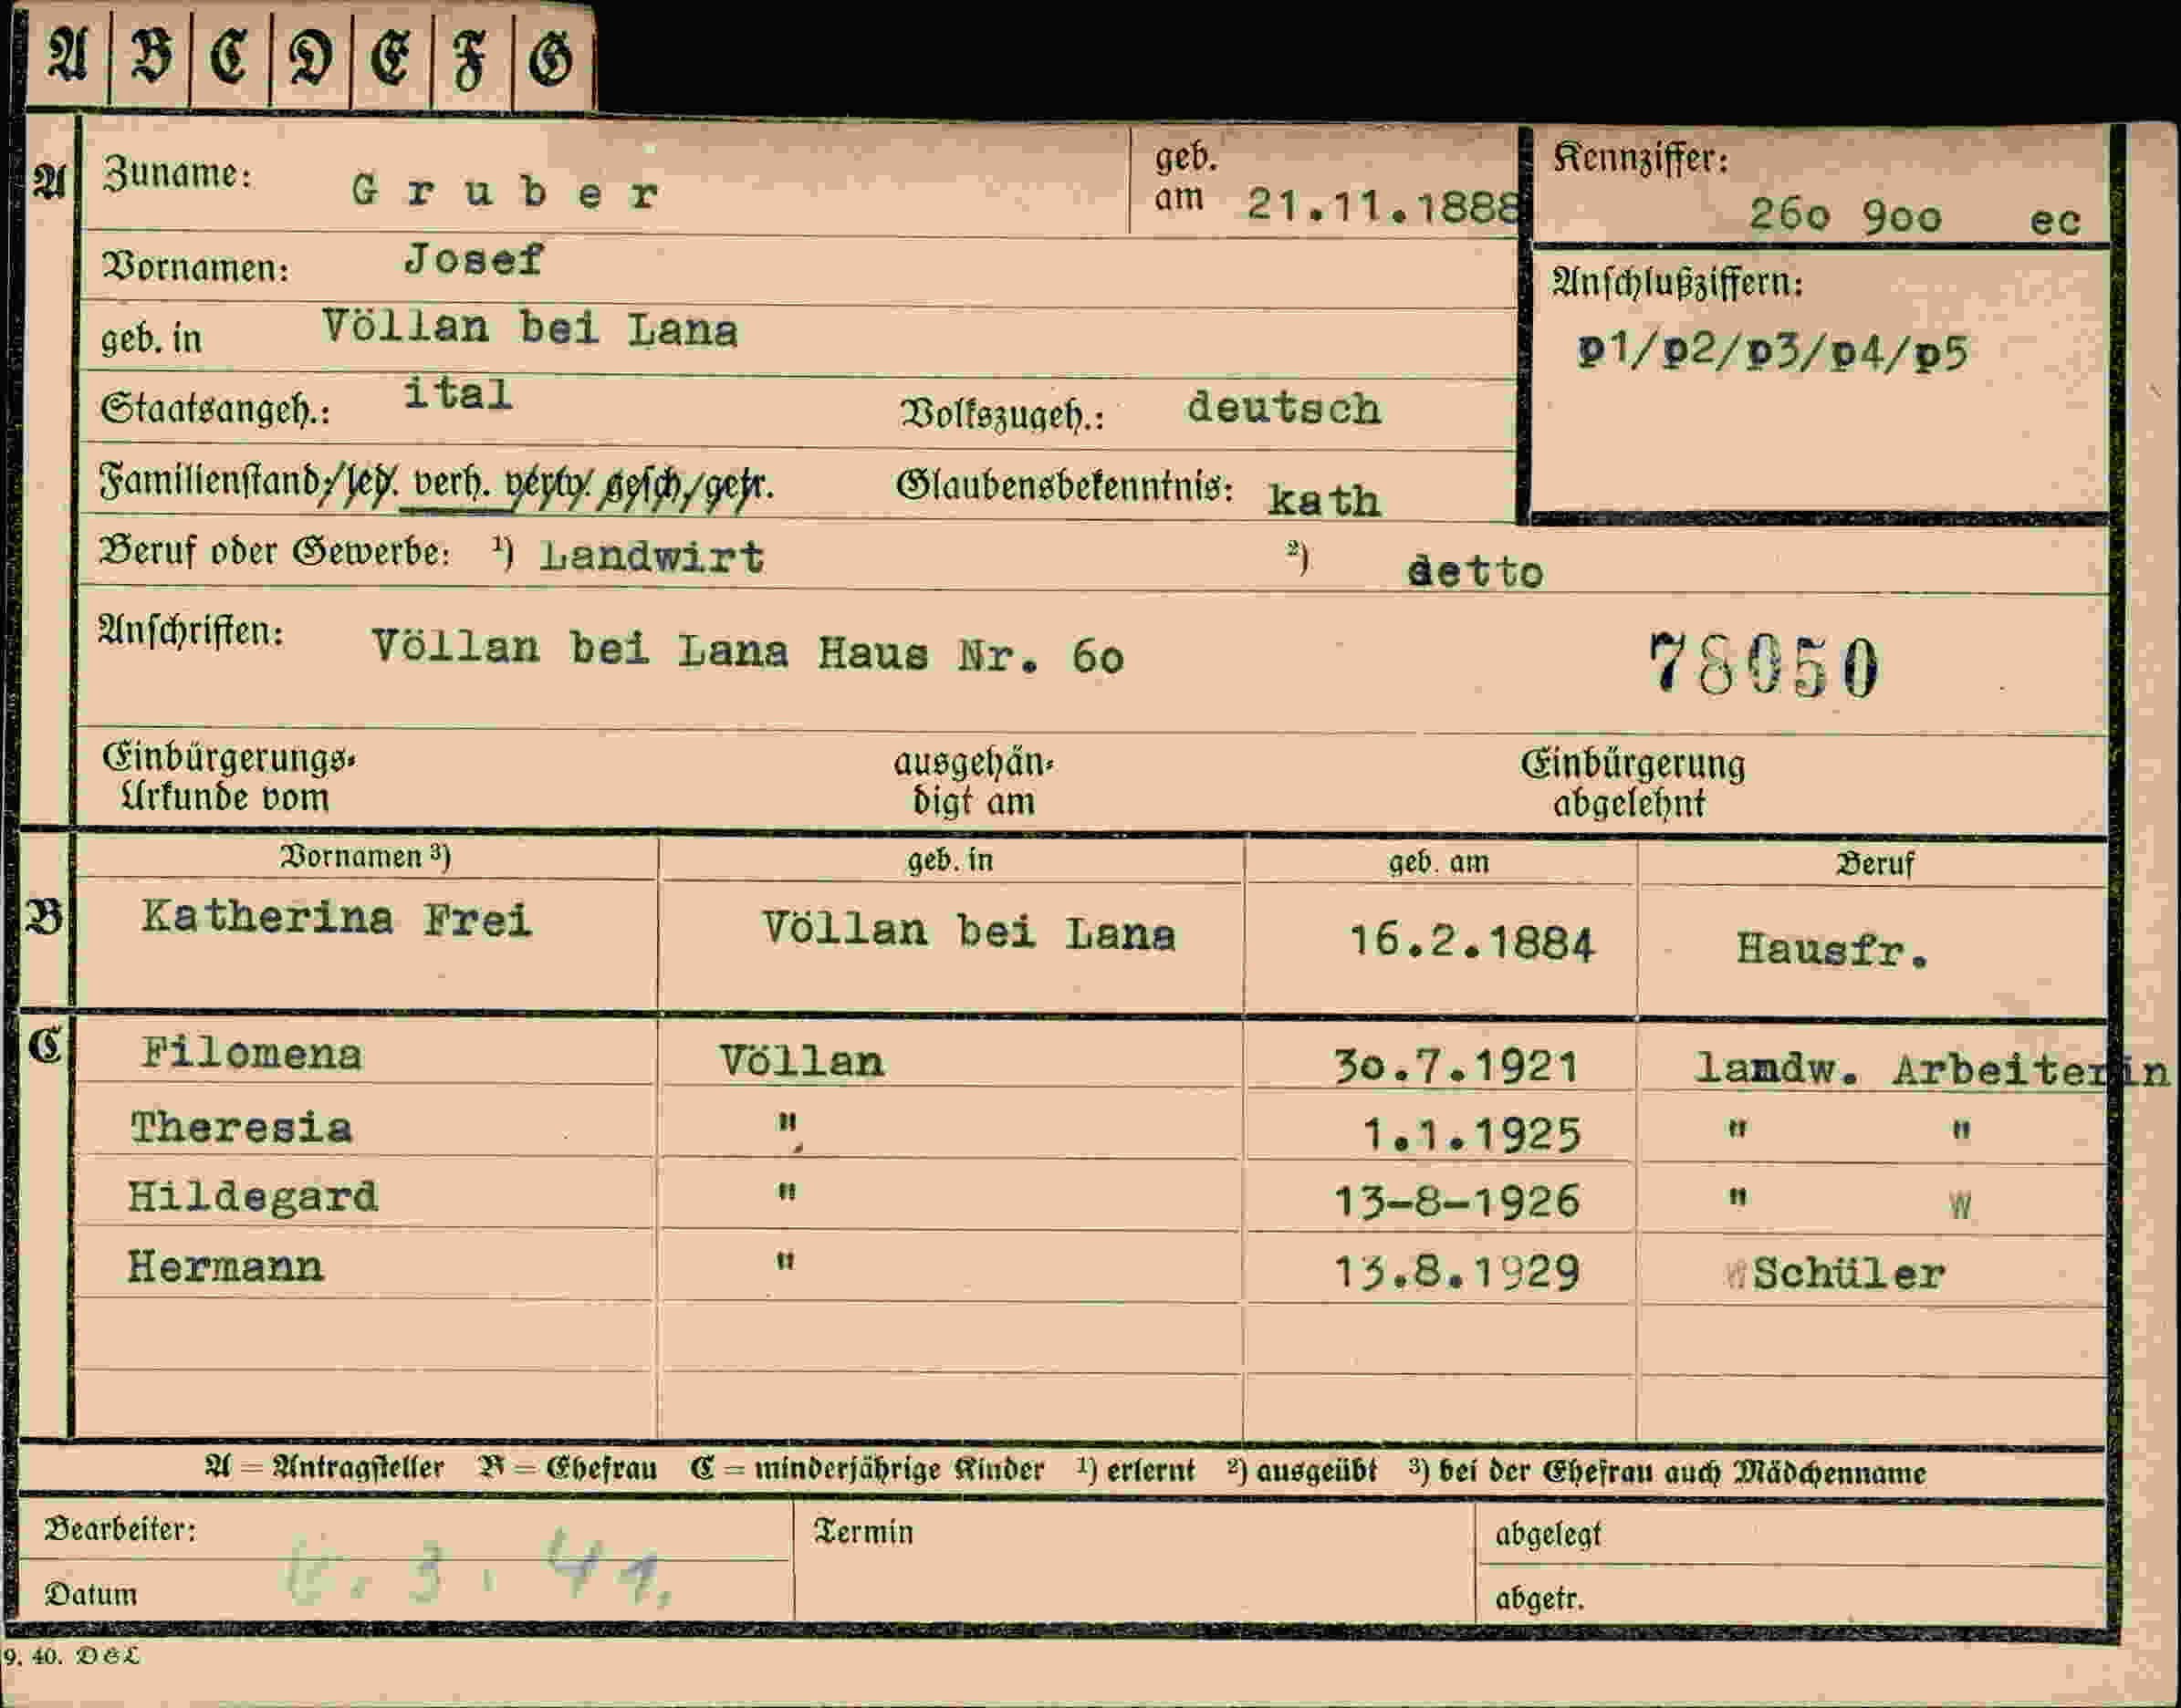 A B C D E F G
A Zuname: Gruber geb. am 21.11.1888 Kennziffer: 260 900 ec
Vornamen: Josef
Anschlußziffern:
geb. in Völlan bei Lana
p1/p2/p3/p4/p5
Staatsangeh.: ital Volkszugeh.: deutsch
Familienstand: led. verh. verw. gesch. getr. Glaubensbekenntnis: kath
Beruf oder Gewerbe: ¹) Landwirt ²) detto
Anschriften: Völlan bei Lana Haus Nr. 60 78050
Einbürgerungs- ausgehän- Einbürgerung
Urkunde vom digt am abgelehnt
Vornamen ³) geb. in geb. am Beruf
B Katherina Frei Völlan bei Lana 16.2.1884 Hausfr.
C Filomena Völlan 30.7.1921 landw. Arbeiterin
Theresia " 1.1.1925 " "
Hildegard " 13-8-1926 " "
Hermann " 13.8.1929 Schüler
A = Antragsteller B = Ehefrau C = minderjährige Kinder ¹) erlernt ²) ausgeübt ³) bei der Ehefrau auch Mädchenname
Bearbeiter: Termin abgelegt
Datum 3. 41. abgetr.
9. 40. D&L